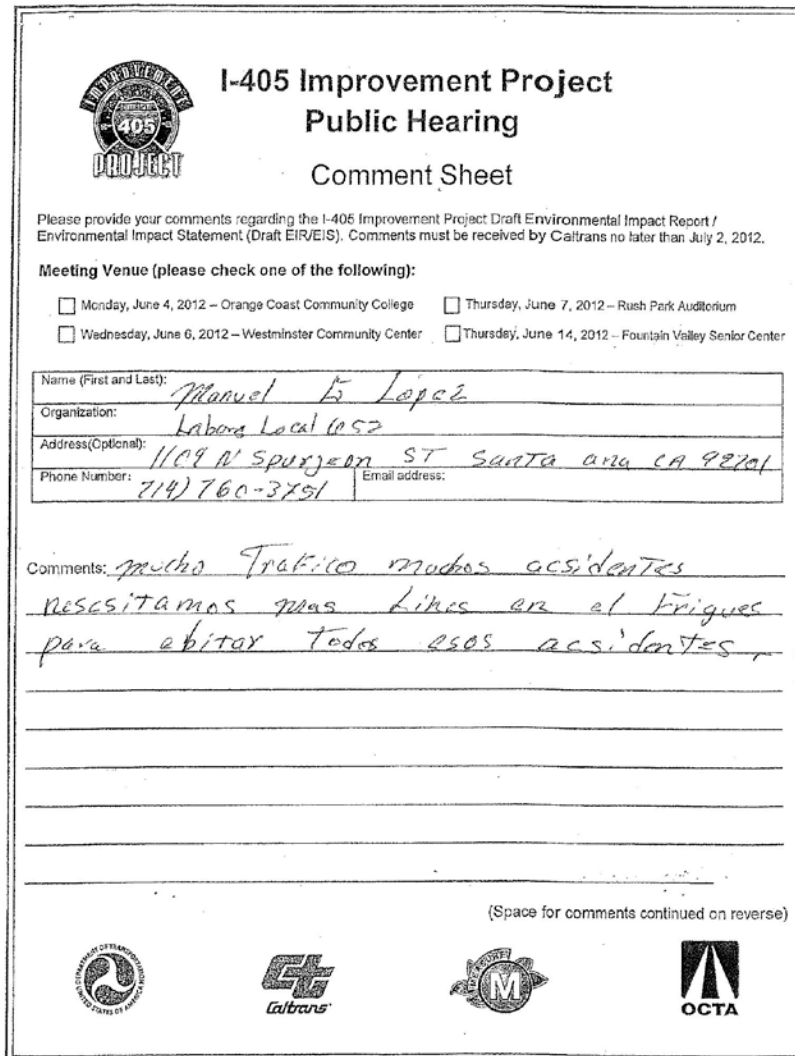 IMPROVEMENT
405
PROJECT
I-405 Improvement Project
Public Hearing
Comment Sheet
Please provide your comments regarding the I-405 Improvement Project Draft Environmental Impact Report /
Environmental Impact Statement (Draft EIR/EIS). Comments must be received by Caltrans no later than July 2, 2012.
Meeting Venue (please check one of the following):
Monday, June 4, 2012 – Orange Coast Community College
Thursday, June 7, 2012 – Rush Park Auditorium
Wednesday, June 6, 2012 – Westminster Community Center
Thursday, June 14, 2012 – Fountain Valley Senior Center
Name (First and Last): Manuel Lopez
Organization: Labors Local 652
Address(Optional): 1109 N Spurgeon ST Santa ana CA 92701
Phone Number: 714) 760-3751
Email address:
Comments: mucho Trafico muchos acsidentes
nesesitamos mas Lines en el friguey
para ebitar Todos esos acsidentes,
(Space for comments continued on reverse)
DEPARTMENT OF TRANSPORTATION
UNITED STATES OF AMERICA
Caltrans
MEASURE
M
OCTA